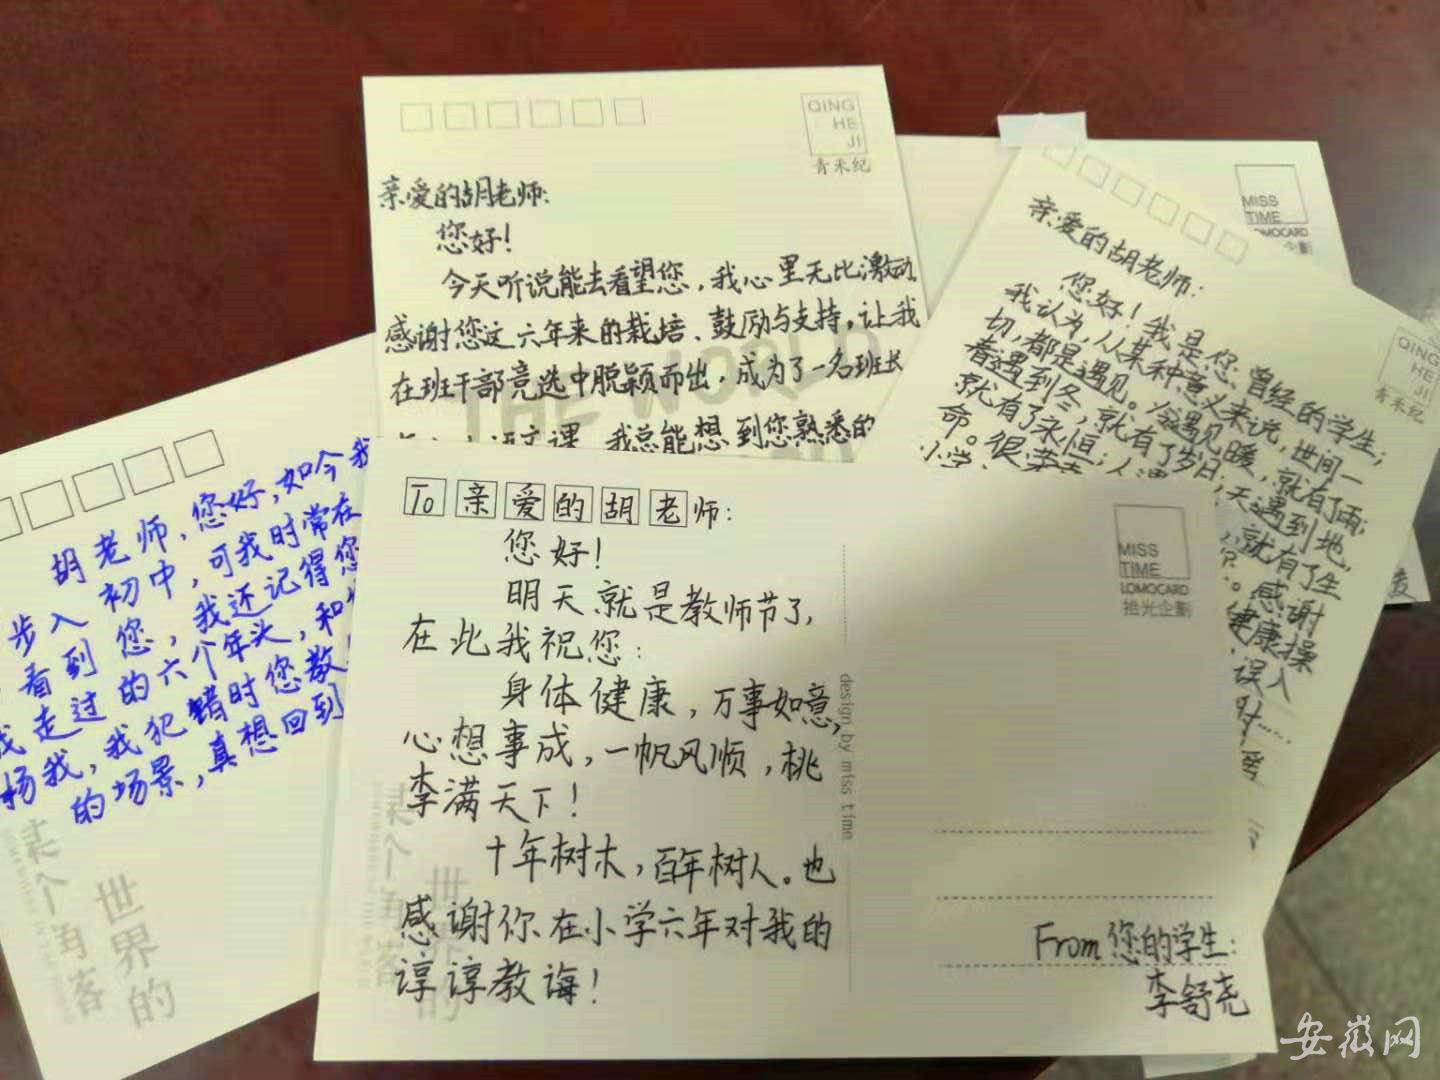 QING
HE
JI
青禾纪
亲爱的胡老师:
您好!
今天听说能去看望您,我心里无比激动,
感谢您这六年来的栽培、鼓励与支持。让我
在班干部竞选中脱颖而出,成为了一名班长
语文课,我总能想到您熟悉的
THE WORLD
MISS
TIME
LOMOCARD
企劃
QING
HE
JI
青禾纪
亲爱的胡老师:
您好!我是您曾经的学生;
我认为,从某种意义来说,世间一
切,都是遇见。冷遇见暖,就有了雨;
春遇到冬,就有了岁日;天遇到地,
就有了永恒;人遇
就有了生
命。很荣幸
感谢
小学
健康操
误入
胡老师,您好,如今我
步入初中,可我时常在
看到您,我还记得您
走过的六个年头,和
扬我,我犯错时您教
的场景,真想回到
某个角落
世界的
To亲爱的胡老师:
您好!
明天就是教师节了,
在此我祝您:
身体健康,万事如意,
心想事成,一帆风顺,桃
李满天下!
十年树木,百年树人。也
感谢你在小学六年对我的
谆谆教诲!
某个角落
世界的
design by miss time
MISS
TIME
LOMOCARD
拾光企劃
From您的学生:
李舒尧
安徽网